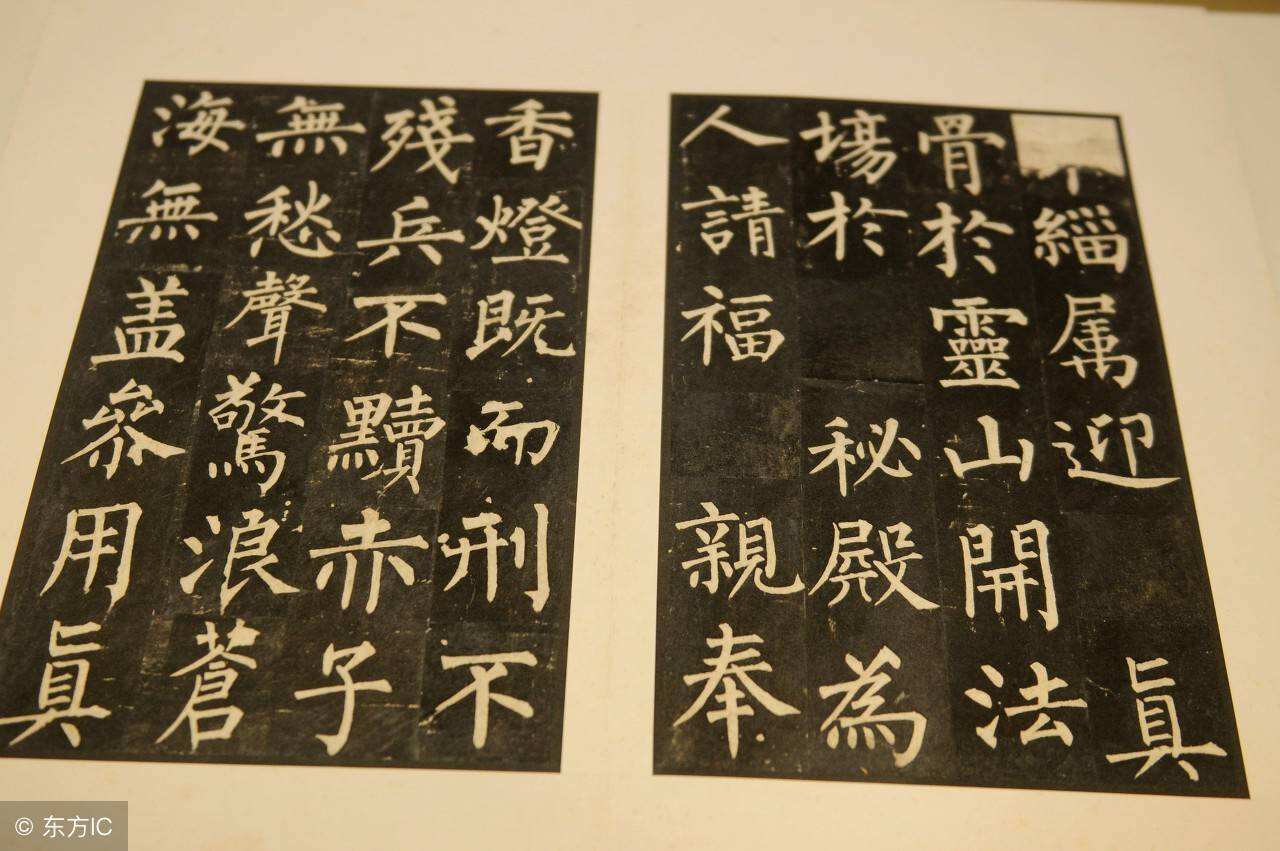 緇属迎 眞
骨於靈山開法
場於 秘殿為
人請福 親奉
香燈既而刑不
殘兵不黷赤子
無愁聲驚浪蒼
海無盖叅用眞
© 东方IC